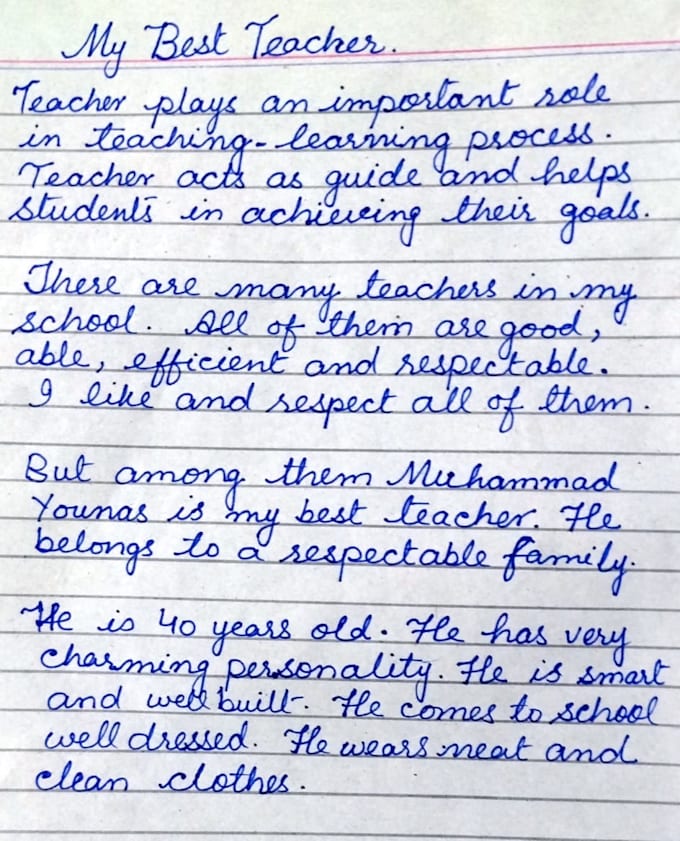 My Best Teacher.
Teacher plays an important role
in teaching-learning process.
Teacher acts as guide and helps
students in achieving their goals.
There are many teachers in my
school. All of them are good,
able, efficient and respectable.
I like and respect all of them.
But among them Muhammad
Younas is my best teacher. He
belongs to a respectable family.
He is 40 years old. He has very
charming personality. He is smart
and well built. He comes to school
well dressed. He wears neat and
clean clothes.